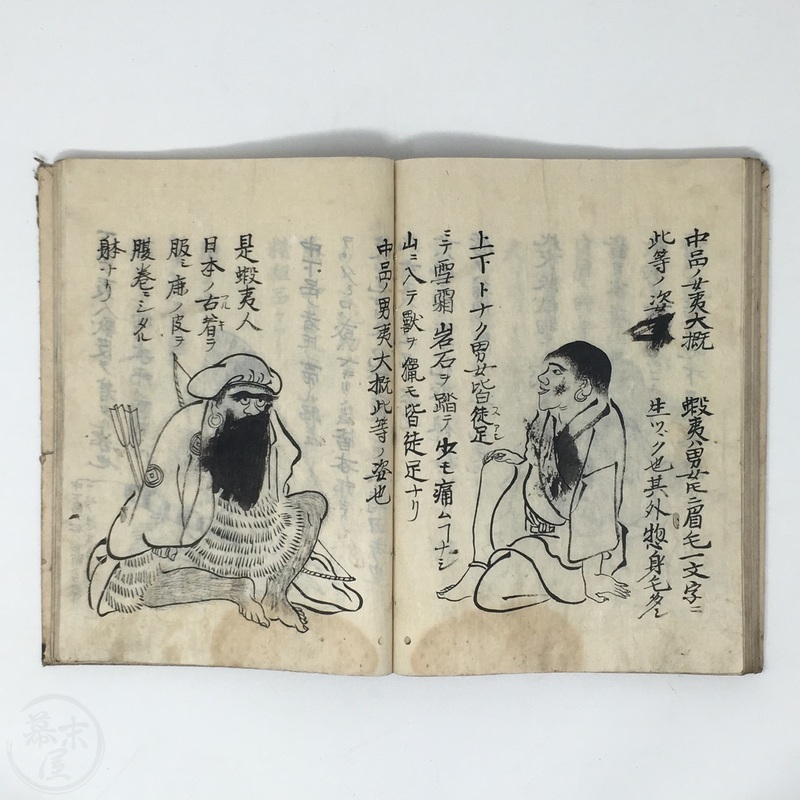 中品ノ女夷大概
此等ノ姿
蝦夷ハ男女𪜈ニ眉毛一文字ニ
生ツヾク也其外惣身毛多シ
上下トナク男女皆徒足
スアシ
ニテ雪霜岩石ヲ踏テ少モ痛ムヿナシ
山ニ入テ獣ヲ猟モ皆徒足ナリ
中品ノ男夷大概此等ノ姿也
是蝦夷人
日本ノ古着ヲ
フルキ
服シ鹿ノ皮ヲ
腹巻ニシタル
躰ナリ
幕末屋